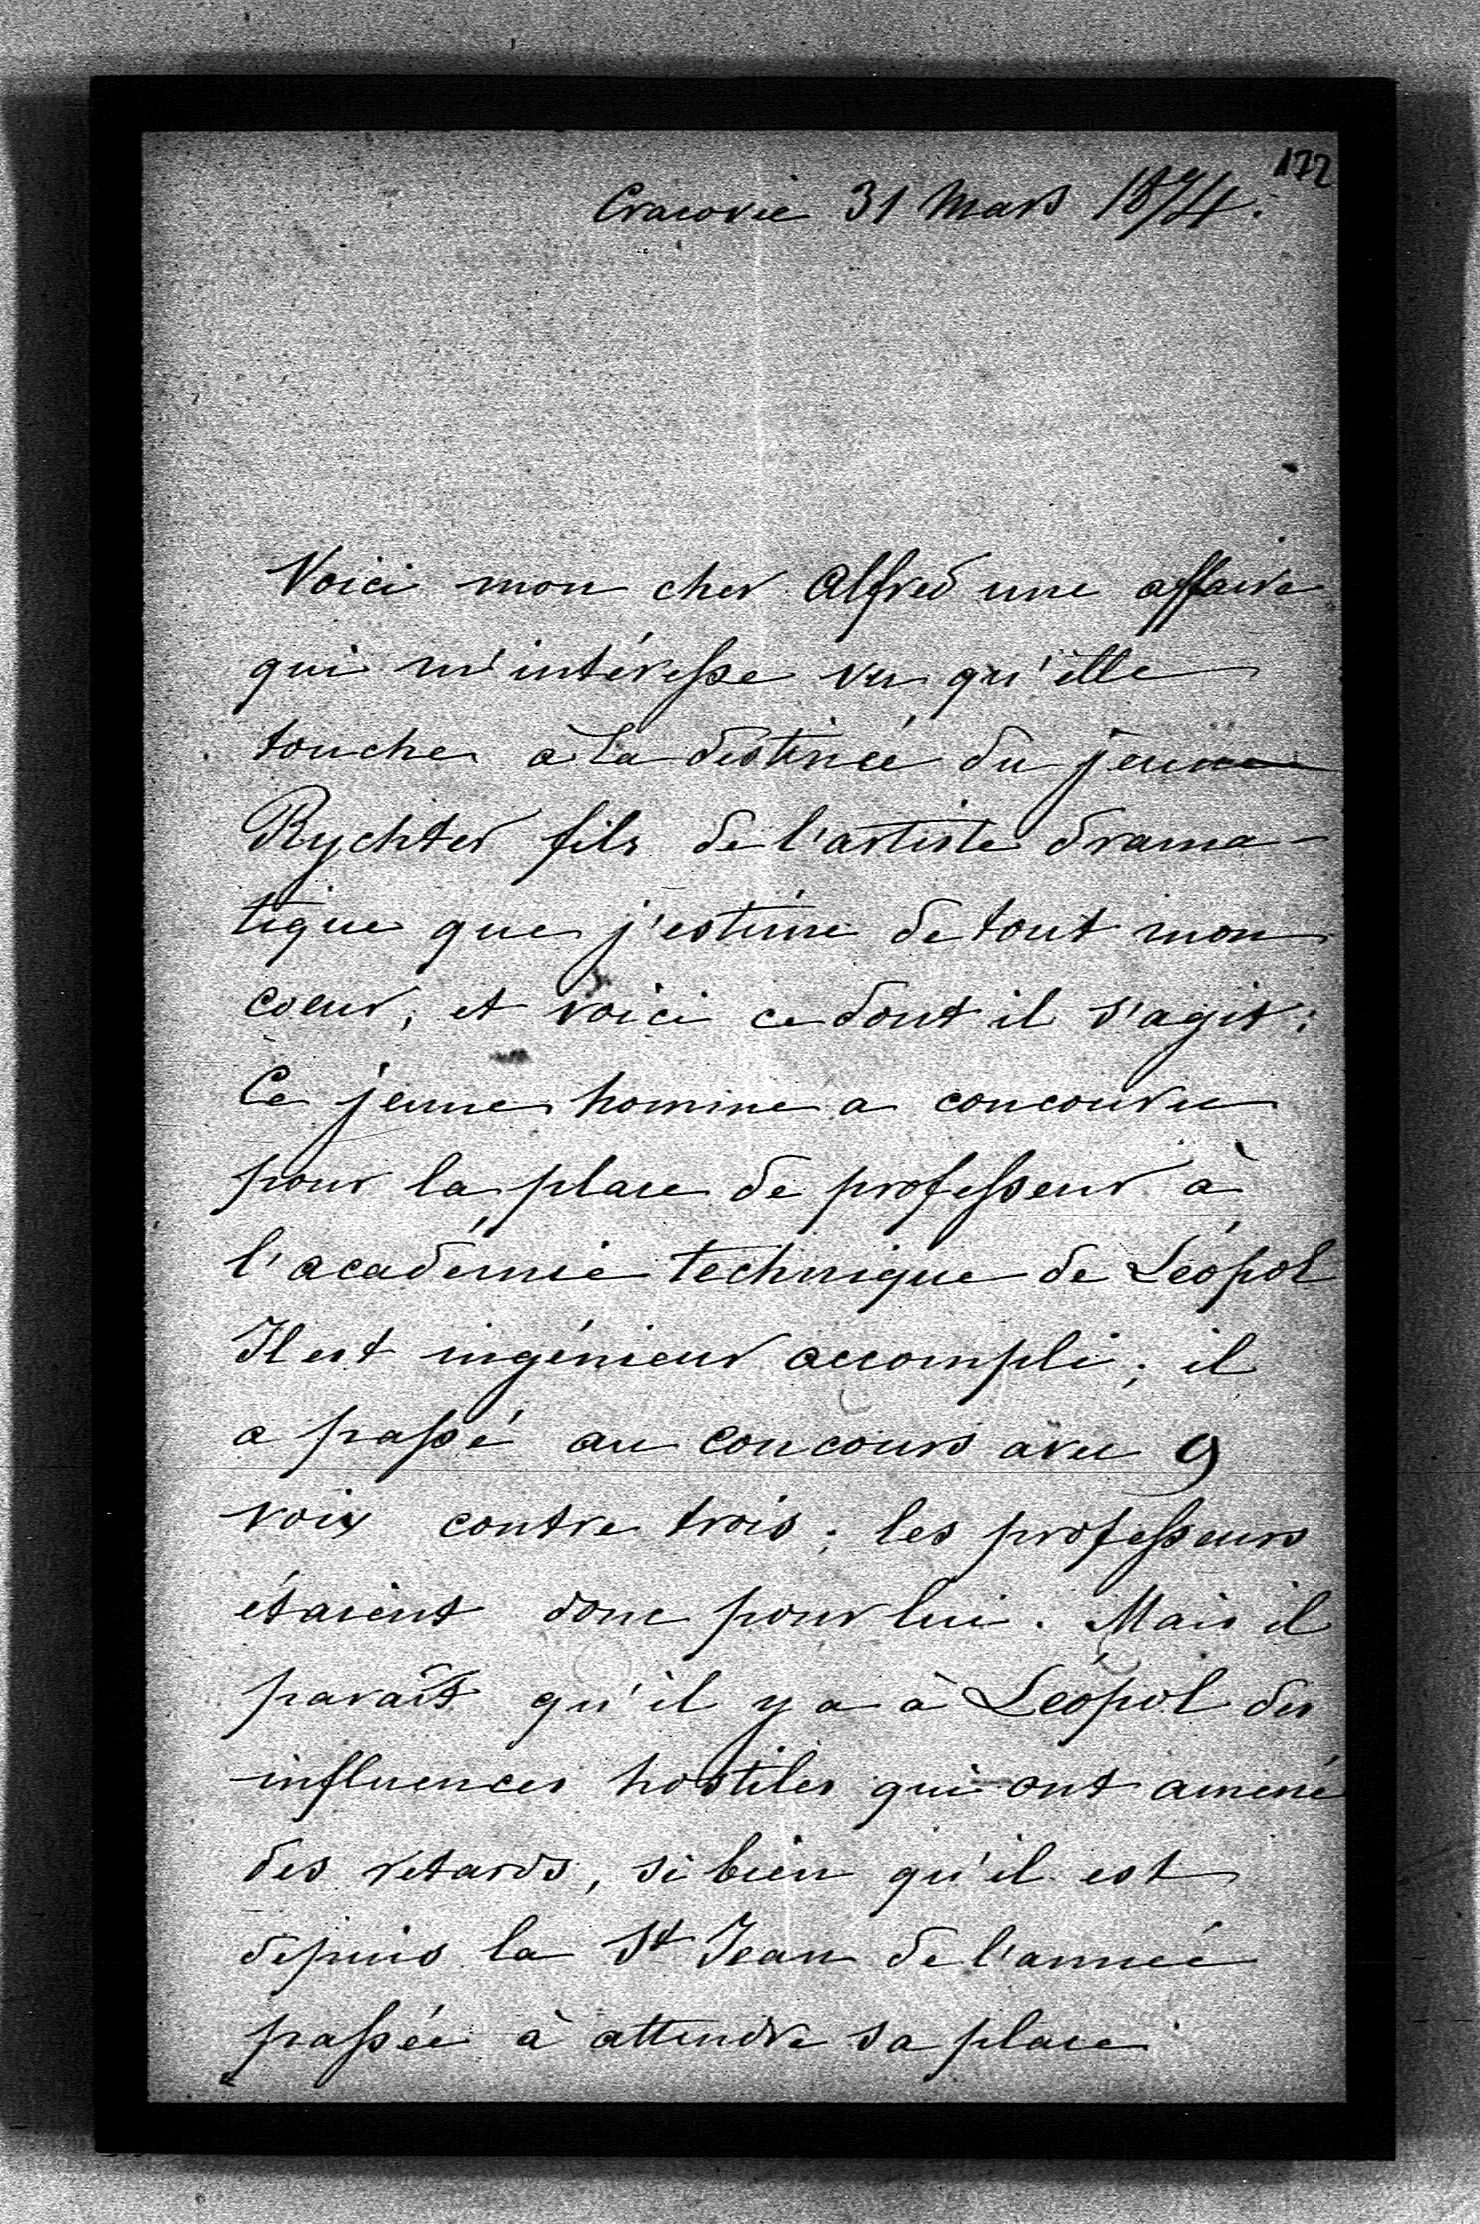 172
Cracovie 31 Mars 1874.
Voici mon cher Alfred une affaire
qui m'intéresse vu qu'elle
touche à la destinée du jeune
Rychter fils de l'artiste drama-
tique que j'estime de tout mon
coeur, et voici ce dont il s'agit:
Ce jeune homme a concouru
pour la place de professeur à
l'académie technique de Léopol
Il est ingénieur accompli; il
a passé au concours avec 9
voix contre trois; les professeurs
étaient donc pour lui. Mais il
paraît qu'il y a à Léopol des
influences hostiles qui ont amené
des retards, si bien qu'il est
depuis la St Jean de l'année
passée à attendre sa place